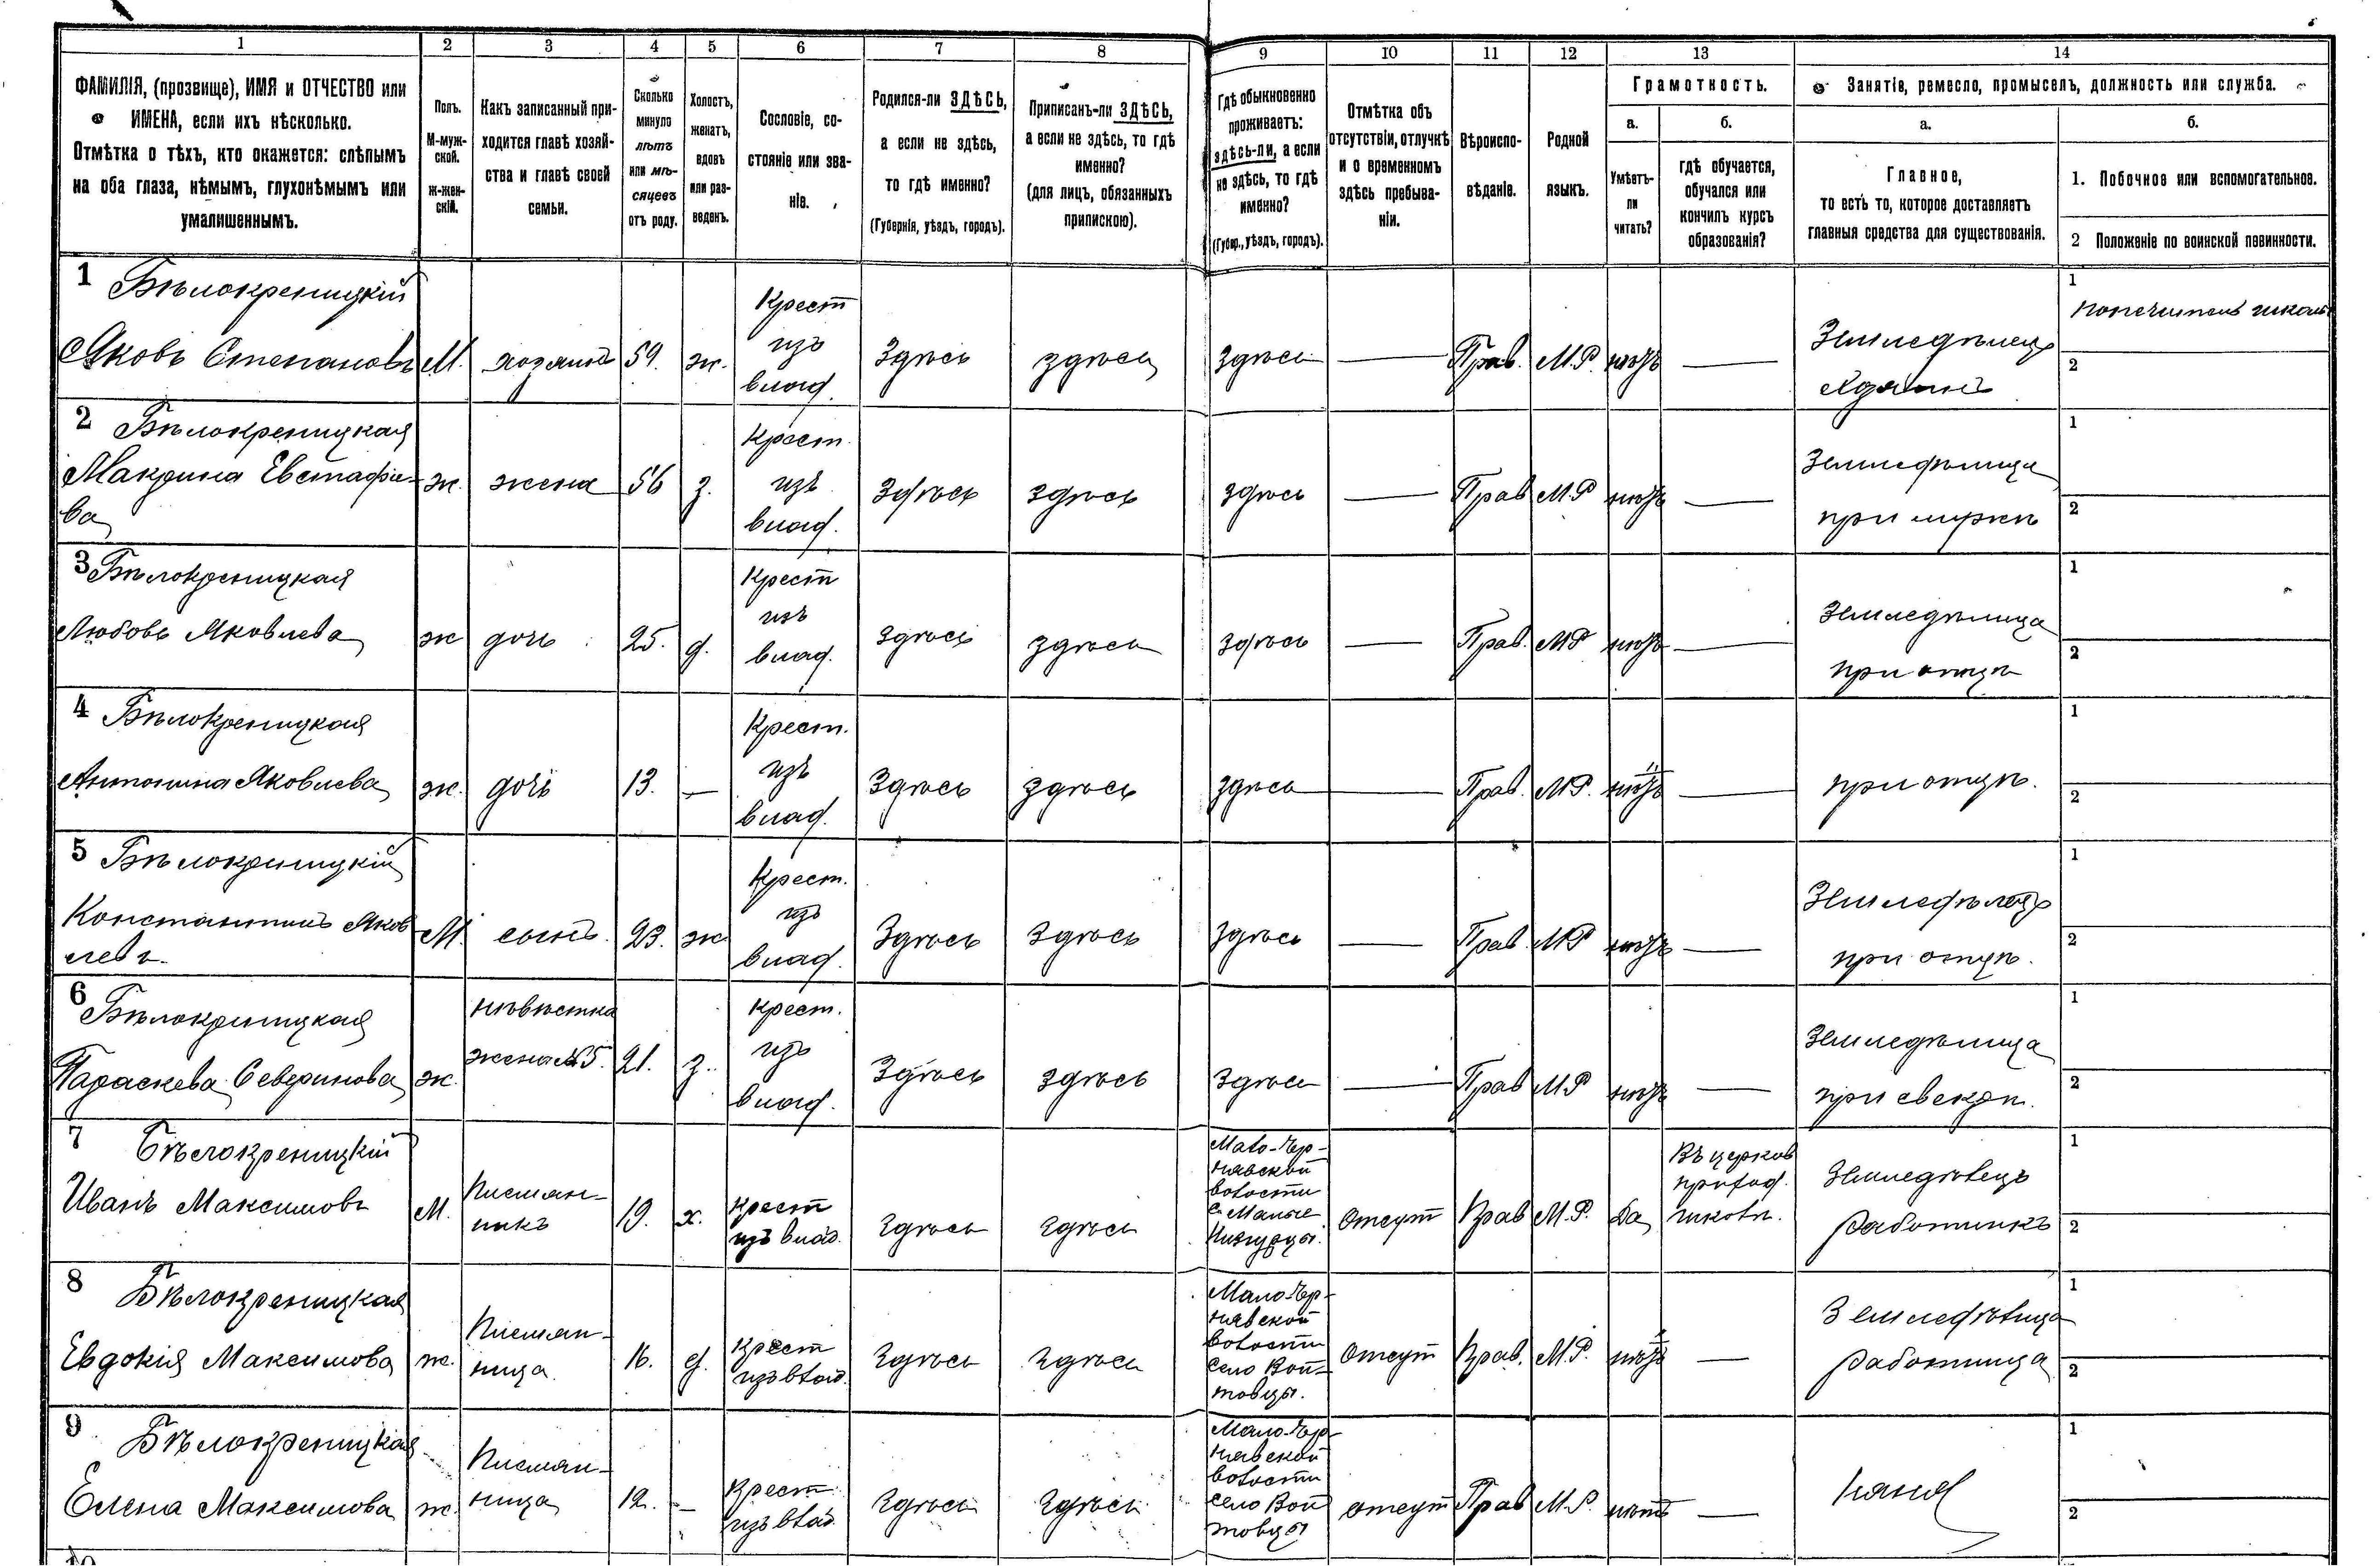 1 2 3 4 5 6 7 8 9 10 11 12 13 14
ФАМИЛІЯ, (прозвище), ИМЯ и ОТЧЕСТВО или
ИМЕНА, если ихъ нѣсколько.
Отмѣтка о тѣхъ, кто окажется: слѣпымъ
на оба глаза, нѣмымъ, глухонѣмымъ или
умалишеннымъ.
Полъ.
М-муж-
ской.
ж-жен-
скій.
Какъ записанный при-
ходится главѣ хозяй-
ства и главѣ своей
семьи.
Сколько
минуло
лѣтъ
или мѣ-
сяцевъ
отъ роду.
Холостъ,
женатъ,
вдовъ
или раз-
веденъ.
Сословіе, со-
стояніе или зва-
ніе.
Родился-ли ЗДѢСЬ,
а если не здѣсь,
то гдѣ именно?
(Губернія, уѣздъ, городъ).
Приписанъ-ли ЗДѢСЬ,
а если не здѣсь, то гдѣ
именно?
(для лицъ, обязанныхъ
припискою).
Гдѣ обыкновенно
проживаетъ:
здѣсь-ли, а если
не здѣсь, то гдѣ
именно?
(Губер., уѣздъ, городъ).
Отмѣтка объ
отсутствіи, отлучкѣ
и о временномъ
здѣсь пребыва-
ніи.
Вѣроиспо-
вѣданіе.
Родной
языкъ.
Грамотность.
а.
Умѣетъ-
ли
читать?
б.
гдѣ обучается,
обучался или
кончилъ курсъ
образованія?
Занятіе, ремесло, промыселъ, должность или служба.
а.
Главное,
то есть то, которое доставляетъ
главныя средства для существованія.
б.
1. Побочное или вспомогательное.
2 Положеніе по воинской повинности.
1 Бѣлокреницкій
Яковъ Степановъ
М.
хозяинъ
59.
ж.
Крест
изъ
влад.
Здѣсь
здѣсь
здѣсь
—
Прав.
М.Р.
нѣтъ
—
Земледѣлецъ
хозяинъ
1
попечитель школы
2
2 Бѣлокреницкая
Макрина Евстафіе-
ва
ж.
жена
56
з.
Крест.
изъ
влад.
Здѣсь
здѣсь
здѣсь
—
Прав
М.Р
нѣтъ
—
Земледѣлица
при мужѣ
1
2
3 Бѣлокреницкая
Любовь Яковлева
ж
дочь
25.
д.
Крест
изъ
влад.
Здѣсь
здѣсь
здѣсь
—
Прав.
М.Р
нѣтъ
—
Земледѣлица
при отцѣ
1
2
4 Бѣлокреницкая
Антонина Яковлева
ж.
дочь
13.
—
Крест.
изъ
влад.
Здѣсь
здѣсь
здѣсь
—
Прав.
М.Р.
нѣтъ
—
при отцѣ.
1
2
5 Бѣлокреницкій
Константинъ Яков
левъ.
М.
сынъ.
23.
ж
Крест.
изъ
влад.
Здѣсь
Здѣсь
здѣсь
—
Прав.
М.Р
нѣтъ
—
Земледѣлецъ
при отцѣ.
1
2
6 Бѣлокреницкая
Параскева Северинова
ж.
нѣвѣстка
жена №5.
21.
з.
Крест.
изъ
влад.
Здѣсь
здѣсь
здѣсь
—
Прав
М.Р
нѣтъ
—
Земледѣлица
при свекрѣ.
1
2
7 Бѣлокреницкій
Иванъ Максимовъ
М.
Племян-
никъ
19.
х.
Крест
изъ влад.
Здѣсь
здѣсь
Мало-Чер-
нявской
волости
с. Малые
отсут
Прав
М.Р.
Да
Въ церков
приход.
школѣ.
Земледѣлецъ
работникъ
1
2
8 Бѣлокреницкая
Евдокія Максимова
ж.
Племян-
ница
16.
д.
Крест
изъ влад.
Здѣсь
здѣсь
Мало-Чер-
нявской
волости
село Вой-
товцы.
отсут
Прав.
М.Р.
нѣтъ
—
Земледѣлица
работница
1
2
9 Бѣлокреницкая
Елена Максимова
ж.
Племян-
ница
12.
—
Крест
изъ влад.
Здѣсь
Здѣсь
Мало-Чер-
нявской
волости
село Вой
товцы
отсут
Прав
М.Р.
нѣтъ
—
няня
1
2